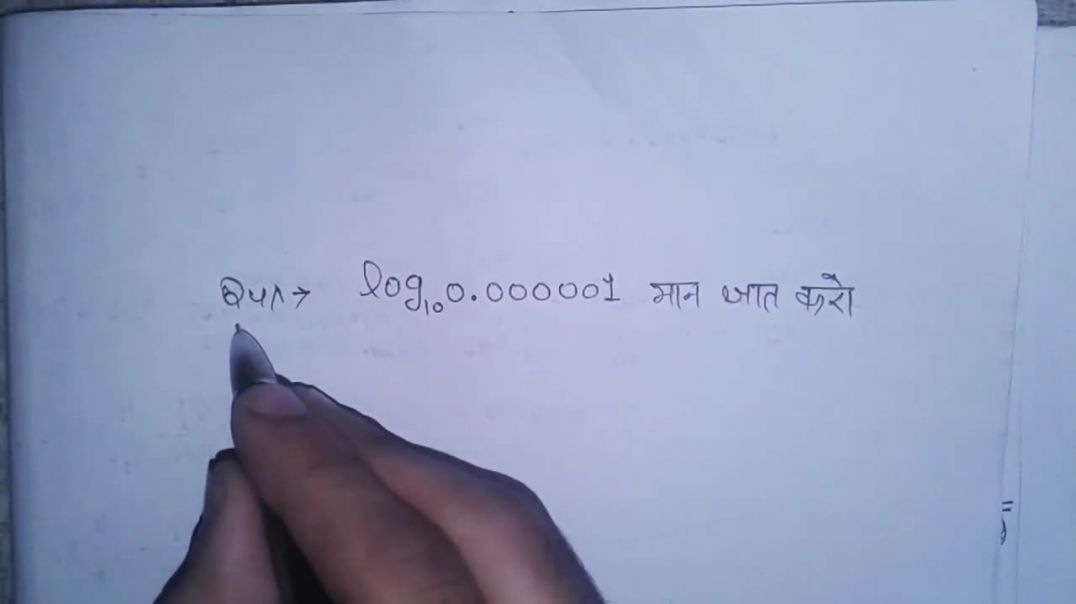 Qus→ log₁₀0.000001 मान ज्ञात करो